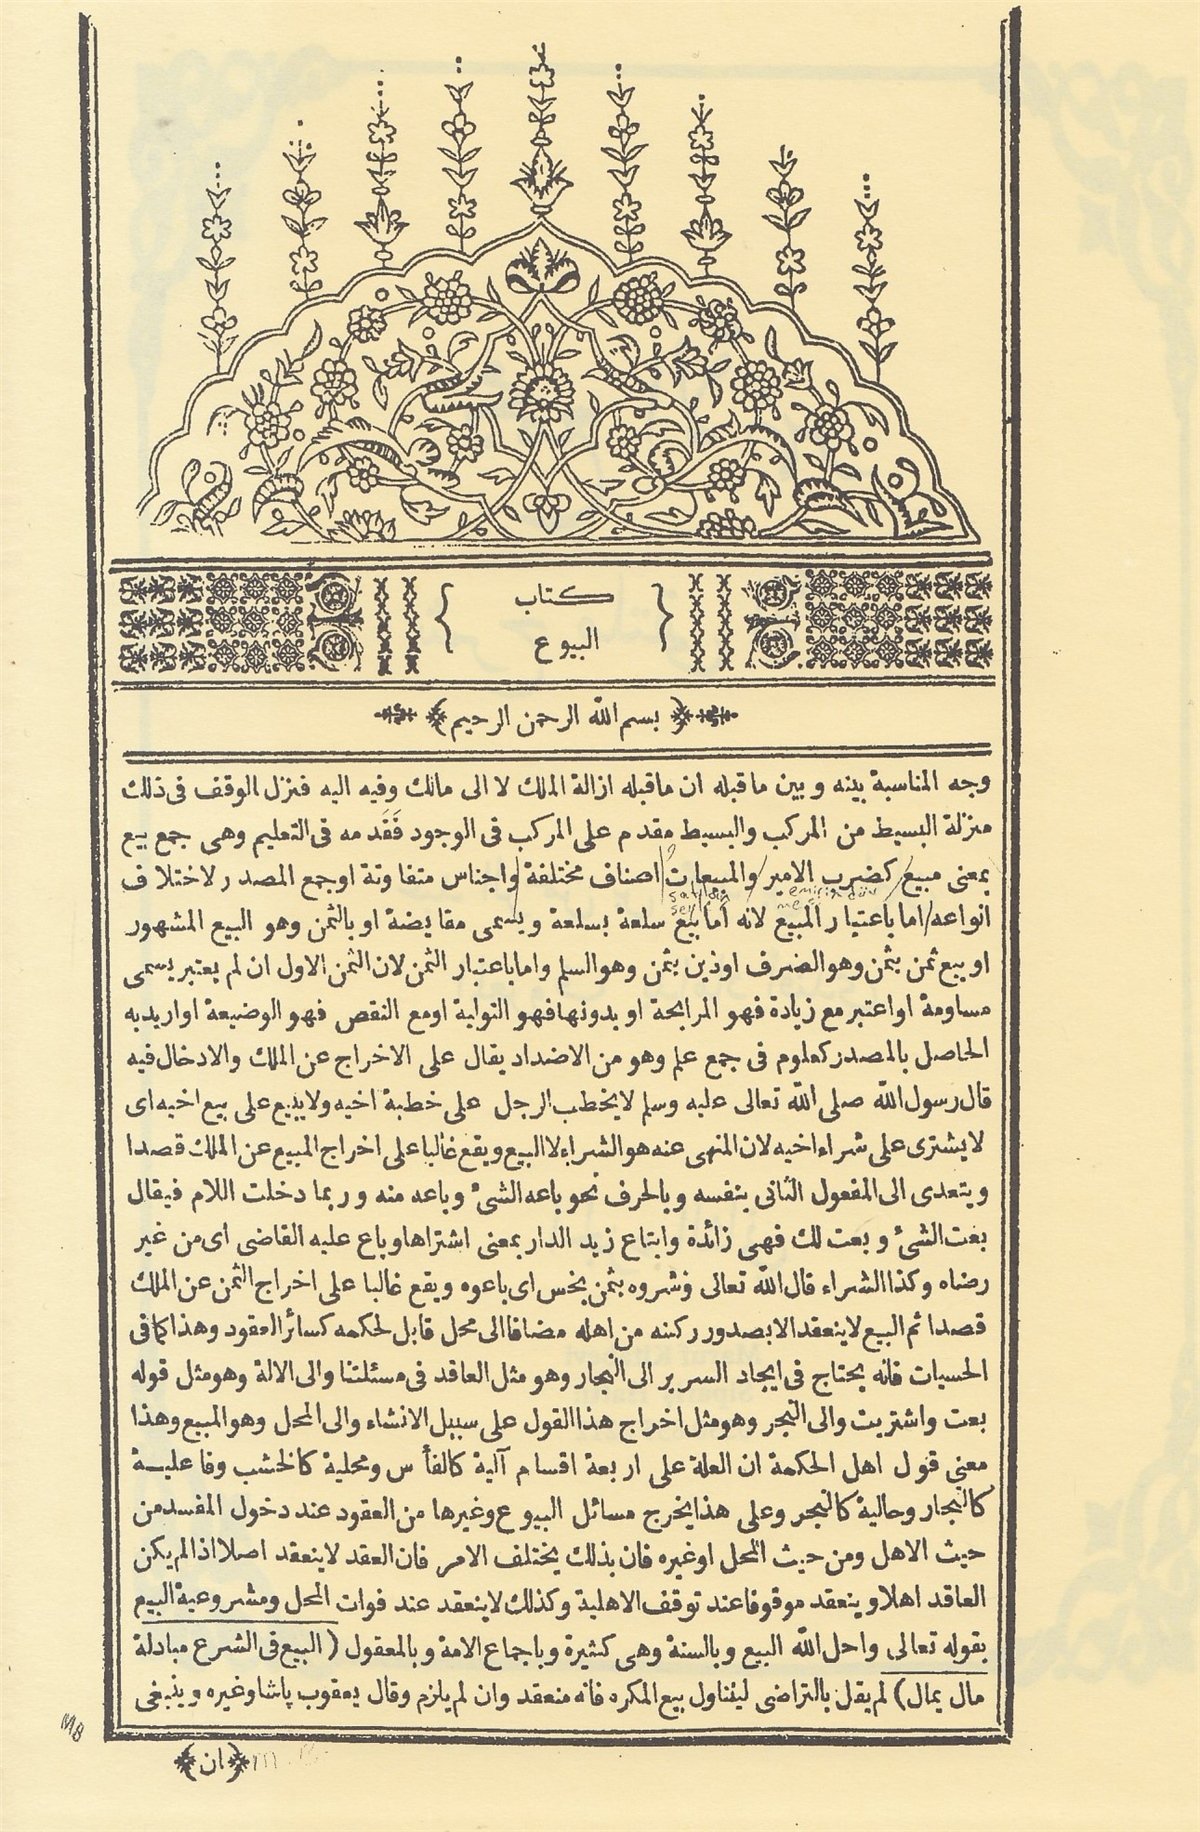 كتاب
البيوع
بسم الله الرحمن الرحيم
وجه المناسبة بينه و بين ما قبله ان ما قبله ازالة الملك لا الى مالك وفيه اليه فنزل الوقف فى ذلك
منزلة البسيط من المركب والبسيط مقدم على المركب فى الوجود فَقَدمه فى التعليم وهى جمع بيع
بمعنى مبيع / كضرب الامير / والمبيعات / اصناف مختلفة / واجناس متفاوتة اوجمع المصدر لاختلاف
satılan emirin döv
şey mesi
انواعه / اما باعتبار المبيع لانه اما بيع سلعة بسلعة ويسمى مقايضة او بالثمن وهو البيع المشهور
او بيع ثمن بثمن وهو الصرف اودين بثمن وهو السلم واما باعتبار الثمن لان الثمن الاول ان لم يعتبر يسمى
مساومة او اعتبر مع زيادة فهو المرابحة او بدونها فهو التولية اومع النقص فهو الوضيعة او اريد به
الحاصل بالمصدر كعلوم فى جمع علم وهو من الاضداد يقال على الاخراج عن الملك والادخال فيه
قال رسول الله صلى الله تعالى عليه وسلم لايخطب الرجل على خطبة اخيه ولا يبيع على بيع اخيه اى
لا يشترى على شراء اخيه لان المنهى عنه هو الشراء لا البيع ويقع غالبا على اخراج المبيع عن الملك قصدا
ويتعدى الى المفعول الثانى بنفسه وبالحرف نحو باعه الشىء و باعه منه و ربما دخلت اللام فيقال
بعت الشىء و بعت لك فهى زائدة وابتاع زيد الدار بمعنى اشتراها وباع عليه القاضى اى من غير
رضاه وكذا الشراء قال الله تعالى وشروه بثمن بخس اى باعوه ويقع غالبا على اخراج الثمن عن الملك
قصدا ثم البيع لاينعقد الا بصدور ركنه من اهله مضافا الى محل قابل لحكمه كسائر العقود وهذا كما فى
الحسيات فانه يحتاج فى ايجاد السرير الى النجار وهو مثل العاقد فى مسئلتنا والى الالة وهو مثل قوله
بعت واشتريت والى النجر وهو مثل اخراج هذا القول على سبيل الانشاء والى المحل وهو المبيع وهذا
معنى قول اهل الحكمة ان العلة على اربعة اقسام آلية كالفأس ومحلية كالخشب وفاعلية
كالنجار وحالية كالنجر وعلى هذا يخرج مسائل البيوع وغيرها من العقود عند دخول المفسد من
حيث الاهل ومن حيث المحل اوغيره فان بذلك يختلف الامر فان العقد لاينعقد اصلا اذا لم يكن
العاقد اهلا و ينعقد موقوفا عند توقف الاهلية وكذلك لاينعقد عند فوات المحل ومشروعية البيع
بقوله تعالى واحل الله البيع وبالسنة وهى كثيرة وباجماع الامة وبالمعقول ( البيع فى الشرع مبادلة
مال بمال ) لم يقل بالتراضى ليتناول بيع المكره فانه منعقد وان لم يلزم وقال يعقوب پاشا وغيره وينبغى
MB
﴿ان﴾